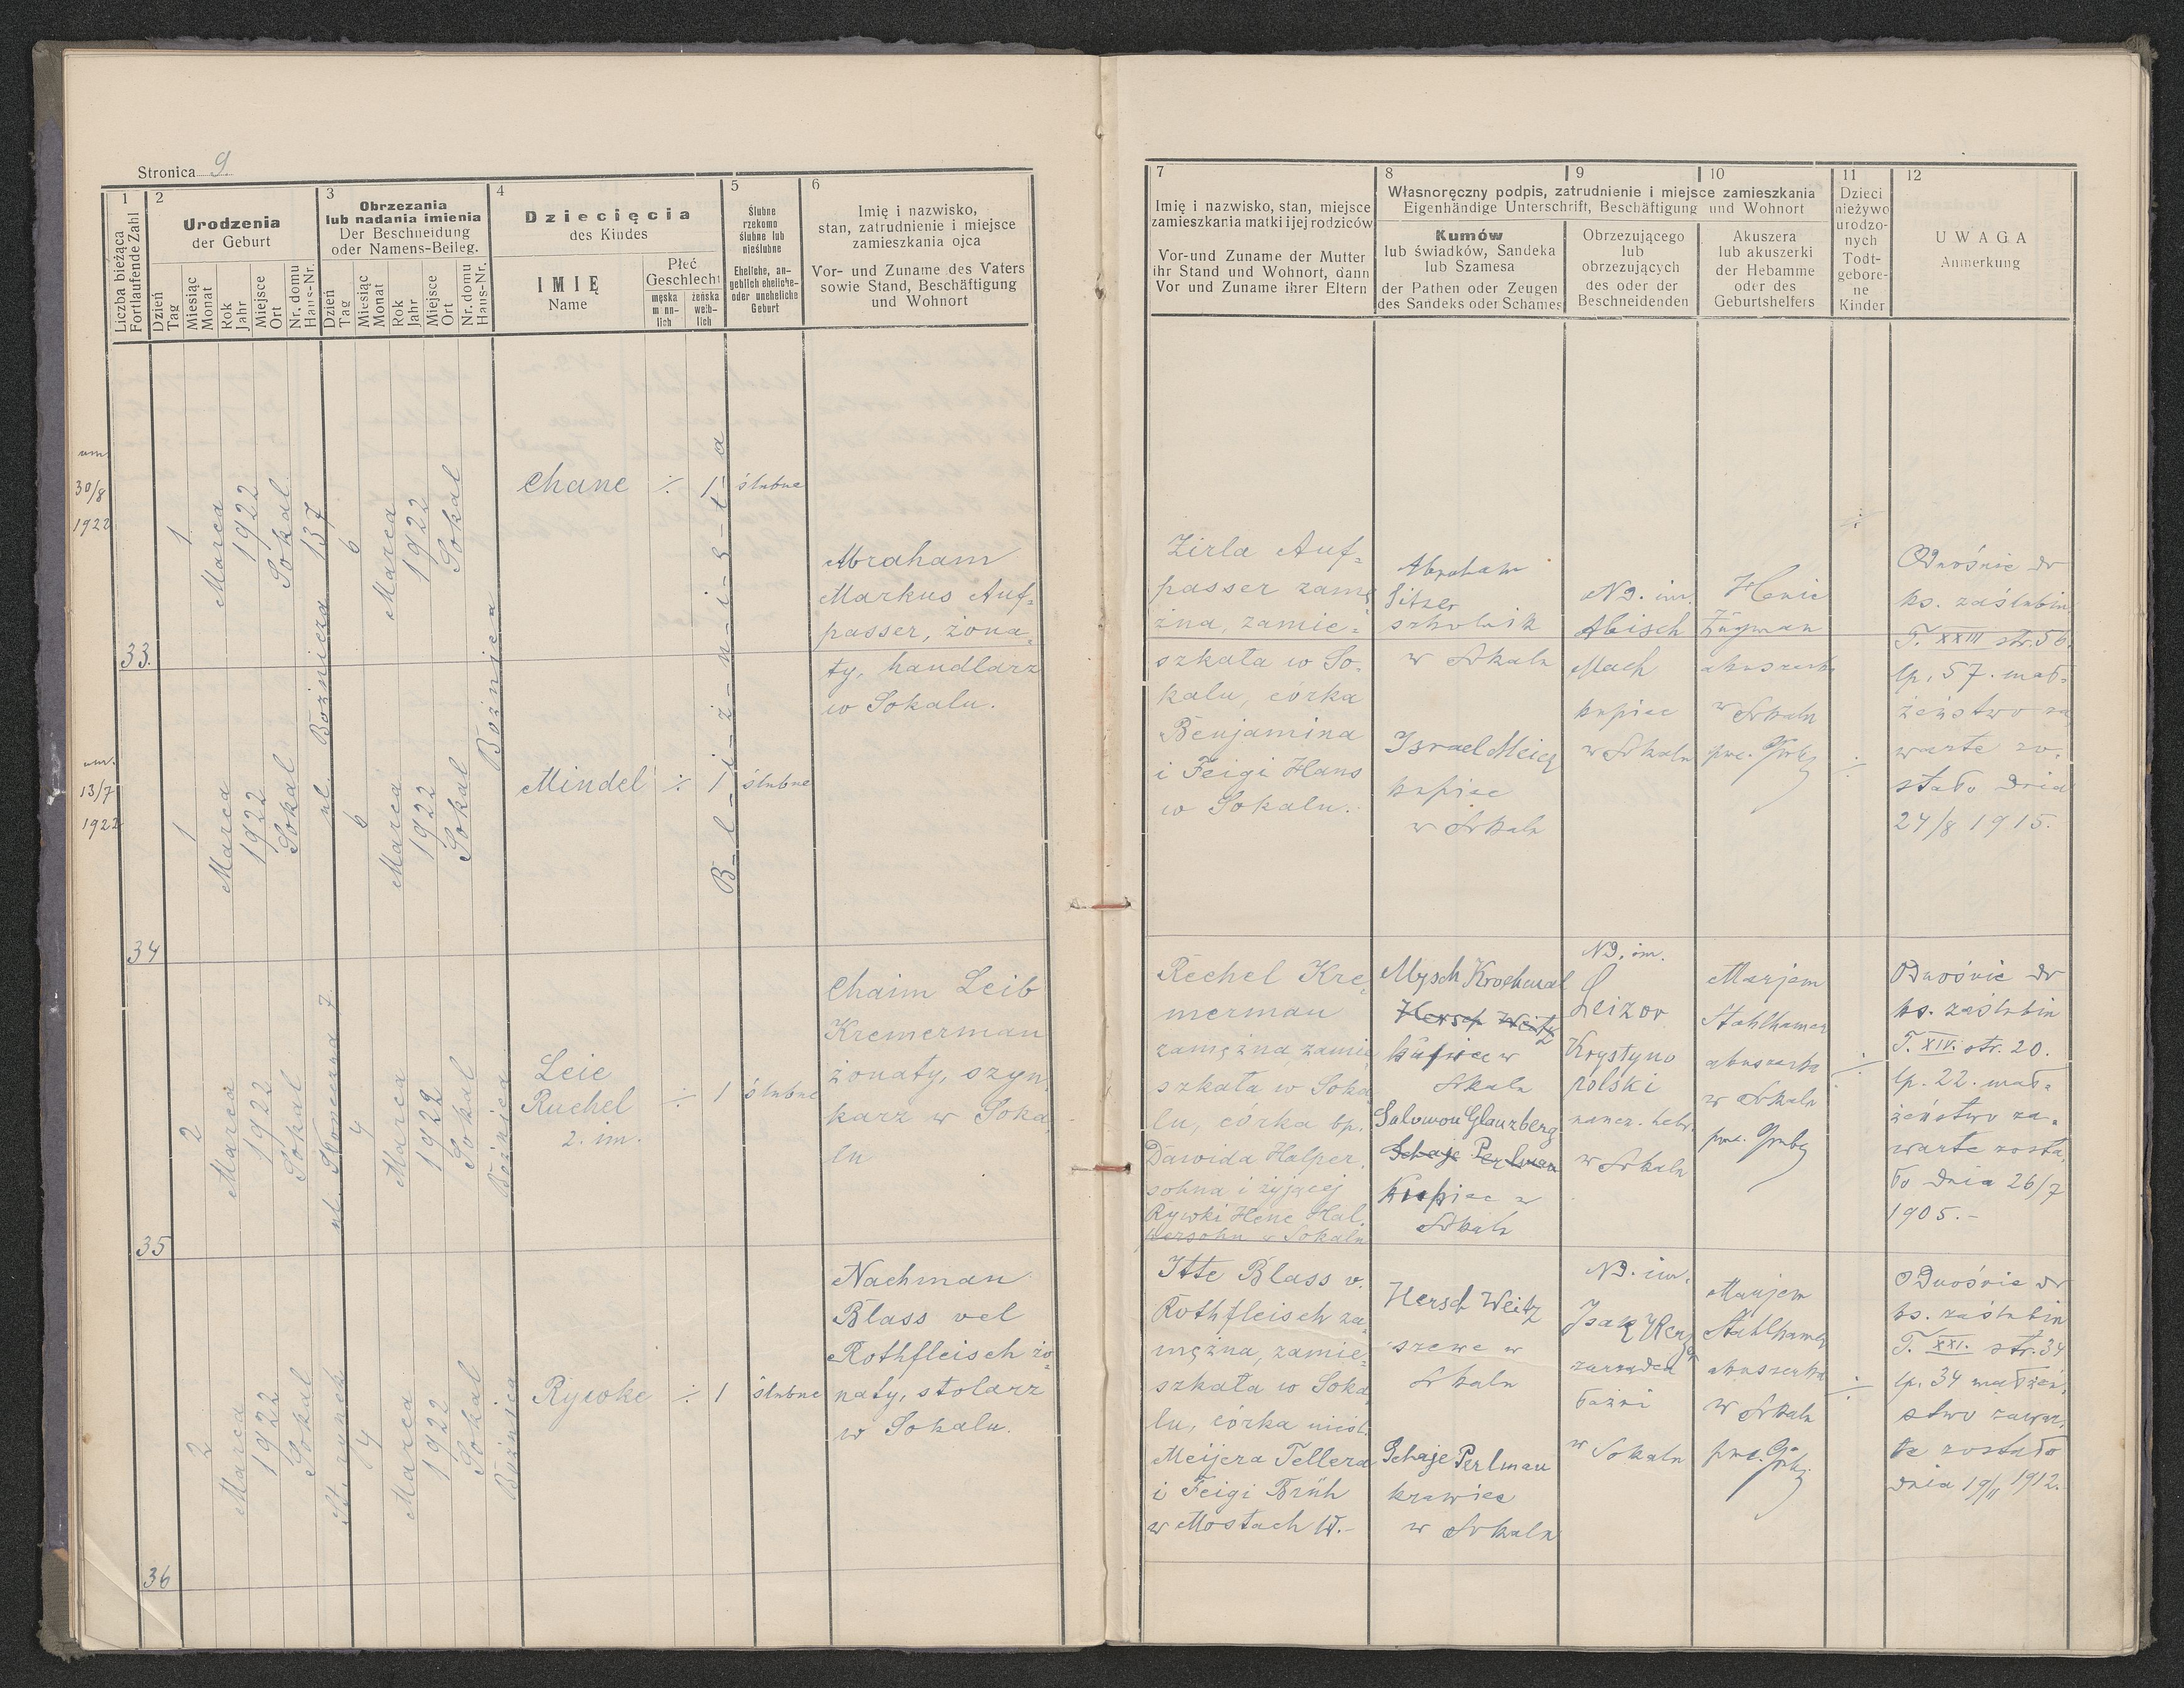 Stronica 9
1
Liczba bieżąca
Fortlaufende Zahl
2
Urodzenia
der Geburt
Dzień
Tag
Miesiąc
Monat
Rok
Jahr
Miejsce
Ort
Nr. domu
Haus-Nr.
3
Obrzezania
lub nadania imienia
Der Beschneidung
oder Namens-Beileg.
Dzień
Tag
Miesiąc
Monat
Rok
Jahr
Miejsce
Ort
Nr. domu
Haus-Nr.
4
Dziecięcia
des Kindes
IMIĘ
Name
Płeć
Geschlecht
męska
männ-
lich
żeńska
weib-
lich
5
Ślubne
rzekomo
ślubne lub
nieślubne
Eheliche, an-
geblich eheliche-
oder uneheliche
Geburt
6
Imię i nazwisko,
stan, zatrudnienie i miejsce
zamieszkania ojca
Vor- und Zuname des Vaters
sowie Stand, Beschäftigung
und Wohnort
7
Imię i nazwisko, stan, miejsce
zamieszkania matki i jej rodziców
Vor-und Zuname der Mutter
ihr Stand und Wohnort, dann
Vor und Zuname ihrer Eltern
8
9
10
Własnoręczny podpis, zatrudnienie i miejsce zamieszkania
Eigenhändige Unterschrift, Beschäftigung und Wohnort
Kumów
lub świadków, Sandeka
lub Szamesa
der Pathen oder Zeugen
des Sandeks oder Schames
Obrzezującego
lub
obrzezujących
des oder der
Beschneidenden
Akuszera
lub akuszerki
der Hebamme
oder des
Geburtshelfers
11
Dzieci
nieżywo
urodzo-
nych
Todt-
gebore-
ne
Kinder
12
UWAGA
Anmerkung
um.
30/8
1922
33.
1
Marca
1922
Sokal
137
6
Marca
1922
Sokal
Chane
÷
1
ślubne
Abraham
Markus Auf=
passer, żona=
ty, handlarz
w Sokalu.
Zirla Auf=
passer zamę
żna, zamie=
szkała w So=
kalu, córka
Benjamina
i Feigi Hans
w Sokalu.
Abraham
szkolnik
w Sokalu
Israel Meier
kupiec
w Sokalu
ND. im.
Abisch
Mach
kupiec
w Sokalu
Henie
akuszerka
w Sokalu
÷
Odnośnie do
ks. zaślubin
T. XXIII str. 56.
lp. 57. mał=
żeństwo za
warte zo=
stało dnia
24/8 1915.
um.
13/7
1922
34
1
Marca
1922
Sokal
ul. Bożnicza
6
Marca
1922
Sokal
Bożnica
Mindel
÷
1
ślubne
B-l-i-ź-n-i-ę-t-a
÷
35
2
Marca
1922
Sokal
ul. Słoneczna 7.
4
Marca
1922
Sokal
Bożnica
Leie
Ruchel
2. im.
÷
1
ślubne
Chaim Leib
Kremerman
żonaty, szyn=
karz w Soka=
lu
Rechel Kre=
merman
zamężna zamie
szkała w Soka
lu, córka bp.
Dawida Halper=
sohna i żyjącej
Rywki Hene Hal=
persohn w Sokalu
Mysch Krochmal
Hersch Weitz
kupiec w
Sokalu
Salomon Glanzberg
Schaje Perlman
Kupiec w
Sokalu
ND. im.
Leizor
Krystyno
polski
naucz. hebr.
w Sokalu
Marjem
Stahlhamer
akuszerka
w Sokalu
÷
Odnośnie do
ks. zaślubin
T. XIV. str. 20.
lp. 22. mał=
żeństwo za=
warte zosta=
ło dnia 26/7
1905.-
36
2
Marca
1922
Sokal
rynek
4
Marca
1922
Sokal
Bożnica
Rywke
÷
1
ślubne
Nachman
Blass vel
Rothfleisch żo=
naty, stolarz
w Sokalu.
Itte Blass v.
Rothfleisch za=
mężna, zamie=
szkała w Soka
lu, córka nieśl.
Meijera Tellera
i Feigi Brüh
w Mostach W.-
Hersch Weitz
szewc w
Sokalu
Schaje Perlman
krawiec
w Sokalu
ND. im.
Isak
zarządca
łaźni
w Sokalu
Marjem
Stahlhamer
akuszerka
w Sokalu
÷
Odnośnie do
ks. zaślubin
T. XXI. str. 34
lp. 34 małżeń=
stwo zawar=
te zostało
dnia 19/11 1912.